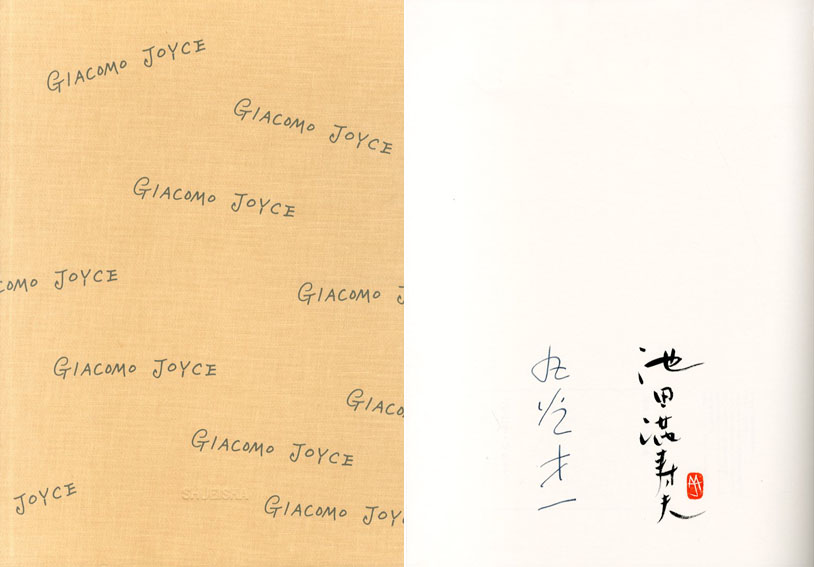 GIACOMO JOYCE
GIACOMO JOYCE
GIACOMO JOYCE
COMO JOYCE
GIACOMO J
GIACOMO JOYCE
GIACO
GIACOMO JOYCE
JOYCE
SHUEISHA
GIACOMO JOY
池田満寿夫
丸谷才一